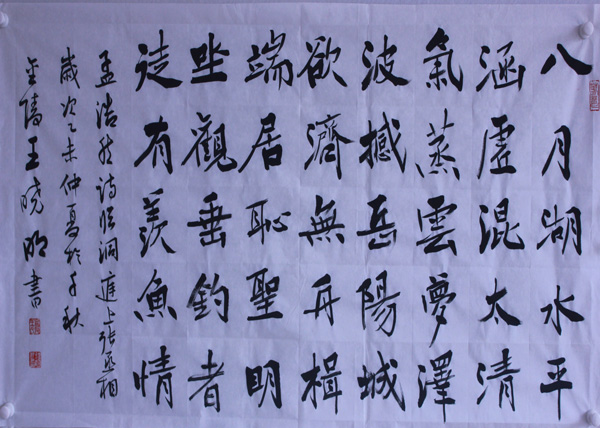 八月湖水平
涵虛混太清
氣蒸雲夢澤
波撼岳陽城
欲濟無舟楫
端居恥聖明
坐觀垂釣者
徒有羨魚情
孟浩然诗临洞庭上张丞相
歲次乙未仲夏於千秋
金王晓明書